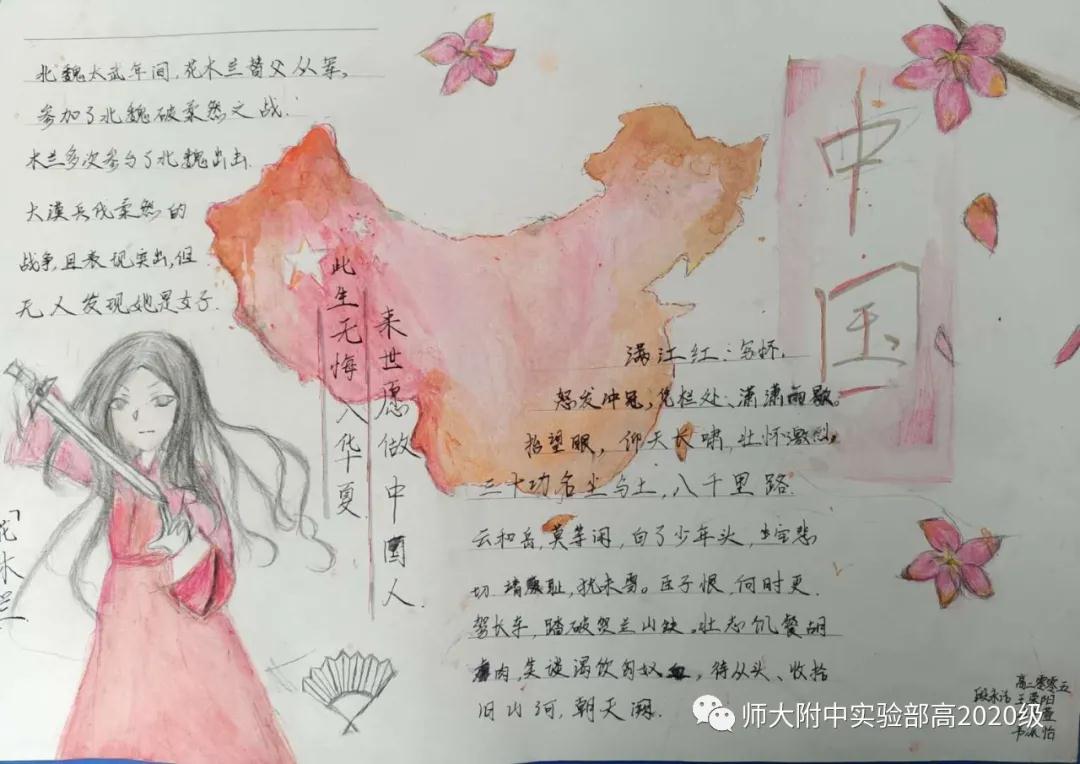 北魏太武年间,花木兰替父从军。
参加了北魏破柔然之战.
木兰多次参与了北魏出击
大漠兵伐柔然的
战争,且表现突出,但
无人发现她是女子.
中国
此生无悔入华夏
来世愿做中国人.
满江红:写怀.
怒发冲冠,凭栏处、潇潇雨歇。
抬望眼,仰天长啸,壮怀激烈。
三十功名尘与土,八千里路
云和月,莫等闲,白了少年头,空悲
切 靖康耻,犹未雪。臣子恨,何时更
驾长车,踏破贺兰山缺。壮志饥餐胡
肉,笑谈渴饮匈奴血,待从头、收拾
旧山河,朝天阙.
「花木兰
高二零零五
师大附中实验部高2020级